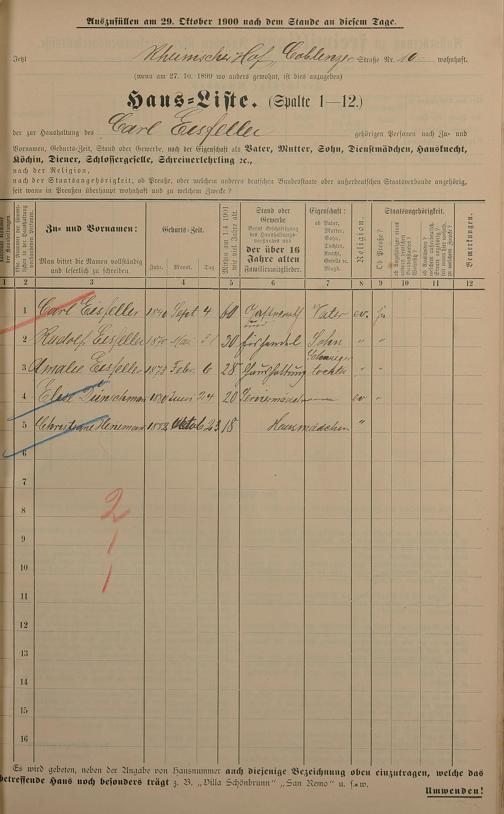 Auszufüllen am 29. Oktober 1900 nach dem Stande an diesem Tage.
Jetzt Rheinischer Hof, Coblenzer Straße Nr. 10 wohnhaft.
(wenn am 27. 10. 1899 wo anders gewohnt, ist dies anzugeben)
Haus-Liste. (Spalte 1—12.)
der zur Haushaltung des Carl Eisfeller gehörigen Personen nach Zu- und
Vornamen, Geburts-Zeit, Stand oder Gewerbe, nach der Eigenschaft als Vater, Mutter, Sohn, Dienstmädchen, Hausknecht,
Köchin, Diener, Schlossergeselle, Schreinerlehrling 2c.,
nach der Religion,
nach der Staatsangehörigkeit, ob Preuße, oder welchem anderen deutschen Bundesstaate oder außerdeutschen Staatsverbande angehörig,
seit wann in Preußen überhaupt wohnhaft und zu welchem Zwecke?
Zu- und Vornamen:
Man bittet die Namen vollständig und leserlich zu schreiben.
Geburts-Zeit.
Jahr. Monat. Tag
Stand oder Gewerbe
der über 16 Jahre alten Familienmitglieder.
Eigenschaft:
ob Vater, Mutter, Sohn, Tochter, Knecht, Geselle 2c. Magd.
Religion.
Staatsangehörigkeit.
Ob Preuße?
Bemerkungen.
1 2 3 4 5 6 7 8 9 10 11 12
1 Carl Eisfeller 1840 Sept 4 60 Gastwirth Vater ev. ja
2 Rudolf Eisfeller 1870 30 Sohn " "
3 Amalie Eisfeller 1872 Febr. 6 28 Haushaltung Schwiegertochter " "
4 Elise 1880 Juni 24 20 Serviermädchen ev "
5 Christiane 1882 Oktob 23 18 Hausmädchen "
6
7
8
9
10
11
12
13
14
15
16
2
1
1
Es wird gebeten, neben der Angabe von Hausnummer auch diejenige Bezeichnung oben einzutragen, welche das
betreffende Haus noch besonders trägt z. B. „Villa Schönbrunn" „San Remo" u. s. w.
Umwenden!